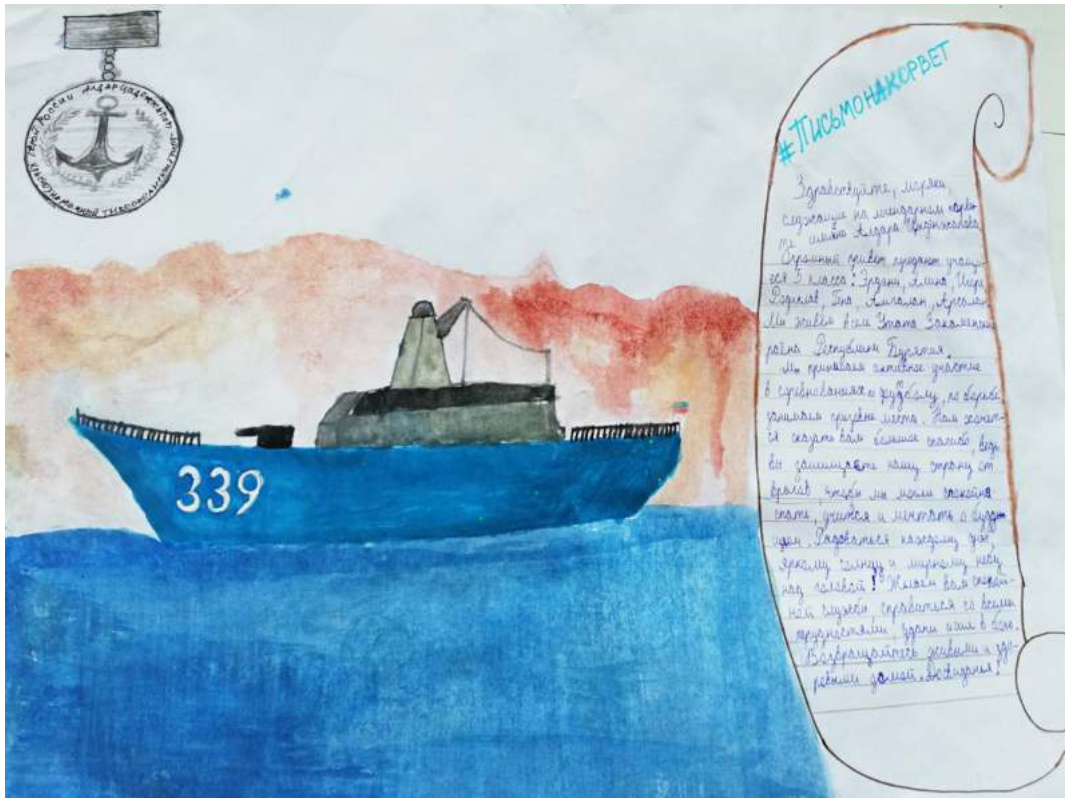 Герой России Алдар Цыденжапов
Тихоокеанский
#ПИСЬМОНАКОРВЕТ
Здравствуйте, моряки,
служащие на легендарном корве
те имени Алдара Цыденжапова
Огромный привет
5 класса: Эрдэни, Алина,
Родислав, Амгалан, Арсалан
Мы живём в селе Утата Закаменского
Республики Бурятия.
Мы активное участие
в соревнованиях по футболу, по борьбе,
занимаем места. Нам хочет-
ся сказать вам большое спасибо, ведь
вы защищаете нашу страну от
врагов, чтобы мы могли
спать, учится и мечтать о
Радоваться каждому дню,
яркому солнцу и мирному небу
над головой! Желаем вам спокой-
ной службы, справиться со всеми
трудностями, удачи в бою.
Возвращайтесь живыми и здо-
ровыми домой.
339